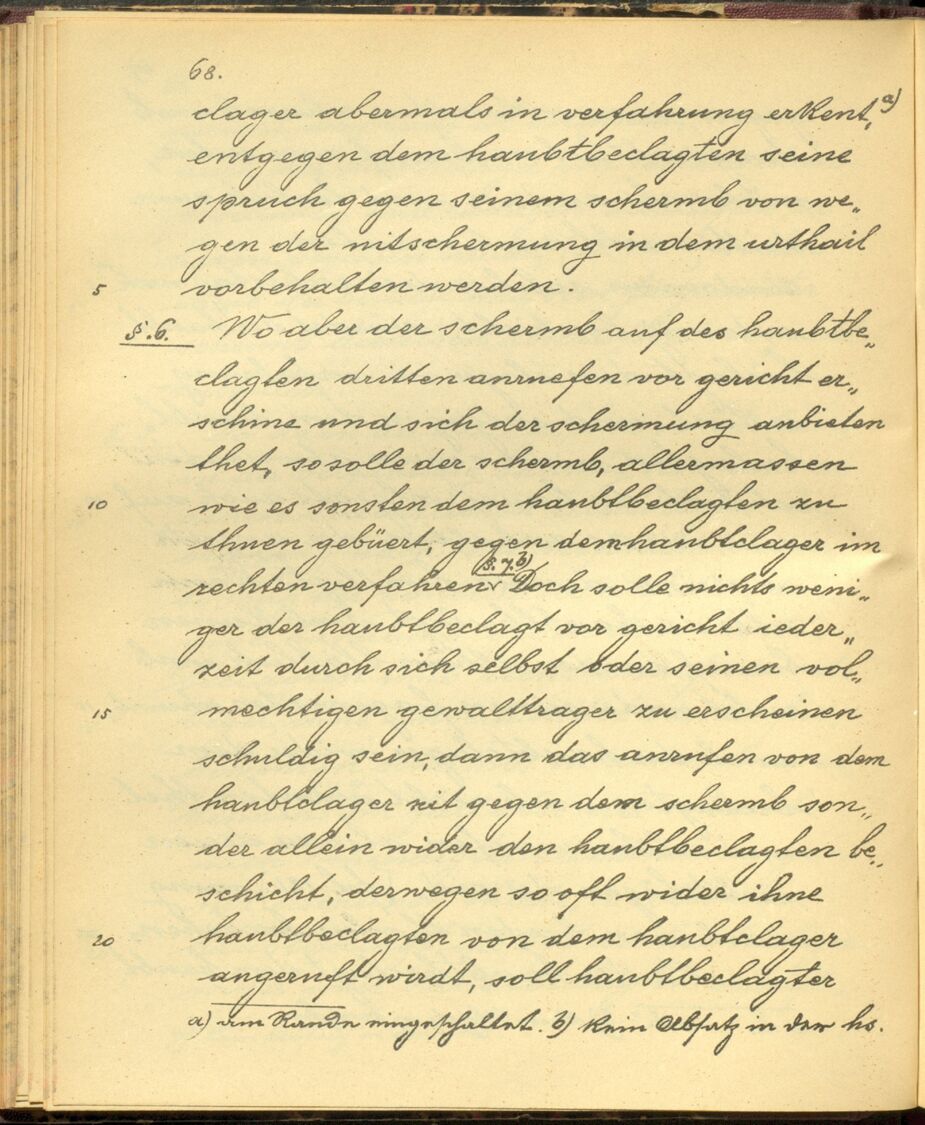 68.
clager abermals in verfahrung erkent, a)
entgegen dem haubtbeclagten seine
spruch gegen seinem schermb von we„
gen der nitschermung in dem urthail
5 vorbehalten werden.
§.6. Wo aber der schermb auf des haubtbe„
clagten dritten anruefen vor gericht er„
schine und sich der schermung anbieten
thet, so solle der schermb, allermassen
10 wie es sonsten dem haubtbeclagten zu
thuen gebüert, gegen dem haubtclager im
rechten verfahren. §.7. b) Doch solle nichts weni„
ger der haubtbeclagt vor gericht ieder„
zeit durch sich selbst oder seinen vol„
15 mechtigen gewalttrager zu erscheinen
schuldig sein, dann das anrufen von dem
haubtclager nit gegen dem schermb son„
der allein wider den haubtbeclagten be„
schicht, derwegen so oft wider ihne
20 haubtbeclagten von dem haubtclager
angeruft wirdt, soll haubtbeclagter
a) am Rande eingeschaltet. b) Kein Absatz in der hs.